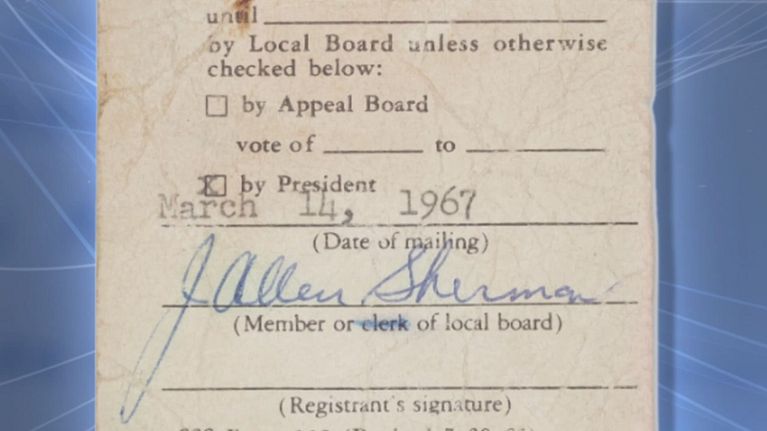 until
by Local Board unless otherwise
checked below:
by Appeal Board
vote of to
X by President
March 14, 1967
(Date of mailing)
J Allen Sherman
(Member or clerk of local board)
(Registrant's signature)